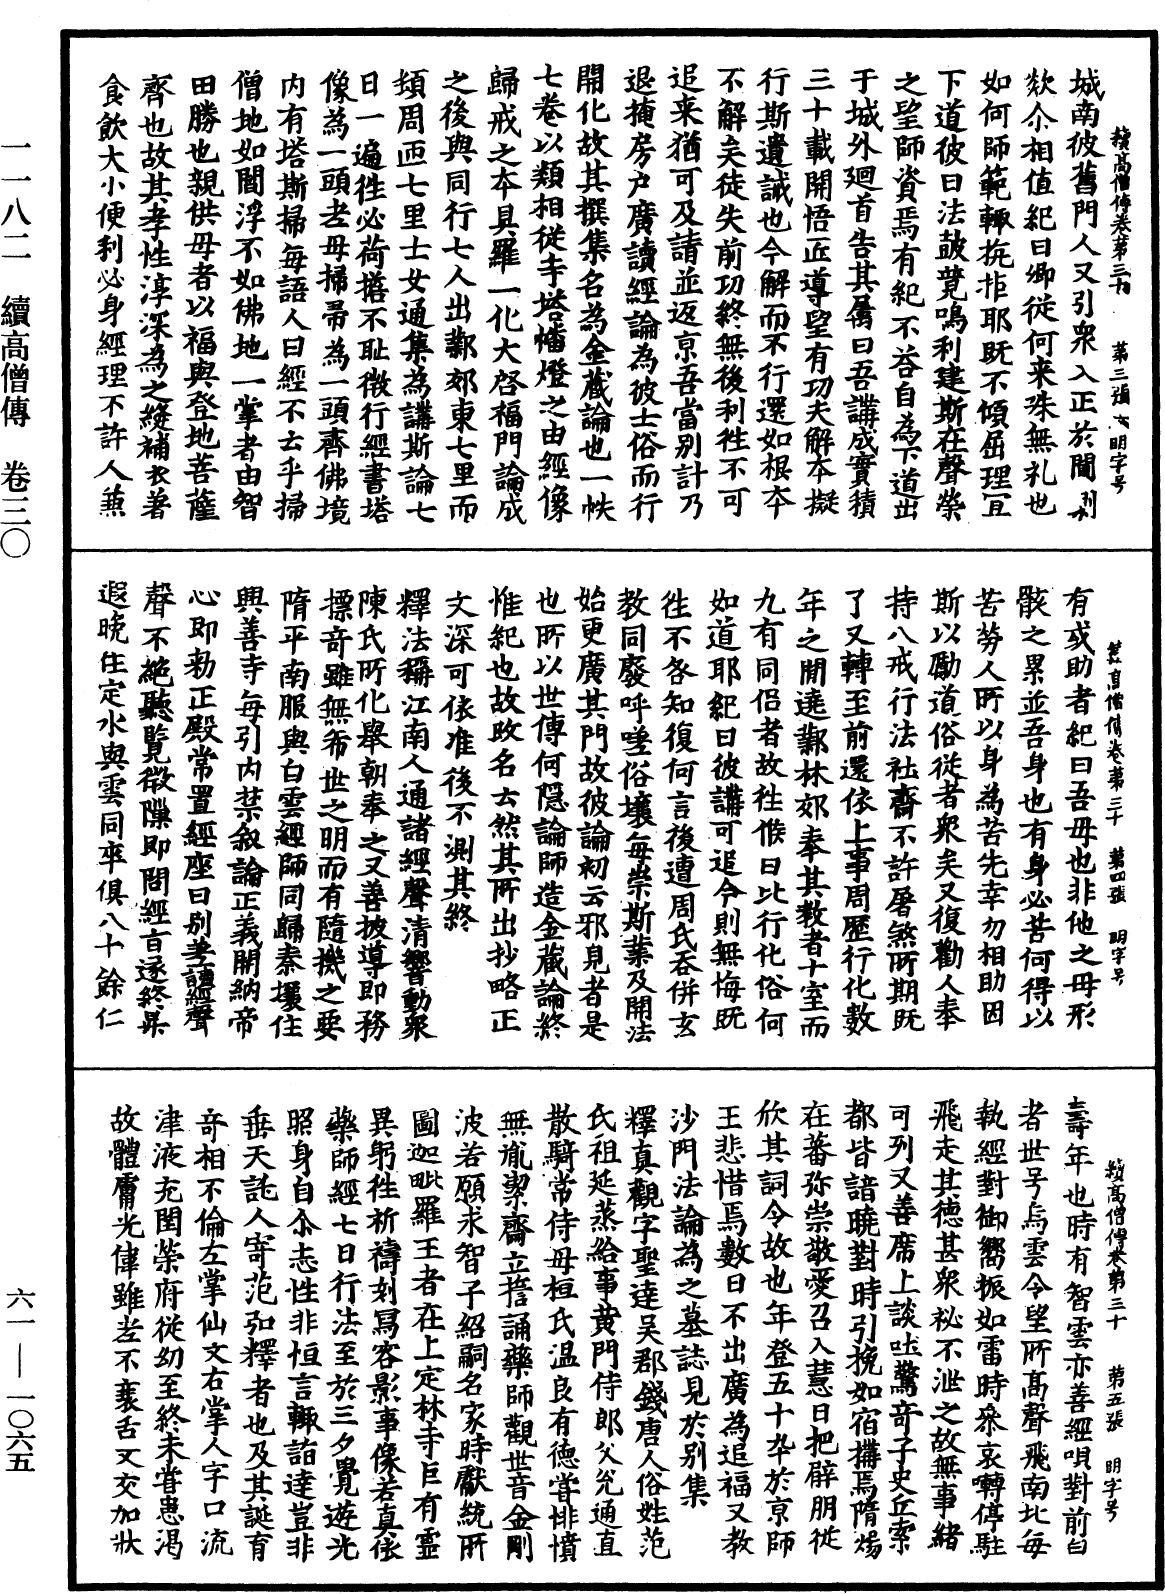 一一八二 續高僧傳 卷三〇
六一—一〇六五
續高僧傳卷第三十 第三張 明字号
城南彼舊門人又引衆入正於閫
欻尒相值紀曰卿従何来殊無礼也
如何師範輙抗拒耶既不傾屈理冝
下道彼曰法鼓競鳴利建斯在聲榮
之望師資焉有紀不荅自為下道出
于城外廻首告其属曰吾講成實積
三十載開悟匠導望有功夫解本擬
行斯遺誡也今解而不行還如根本
不解矣徒失前功終無後利徃不可
追来猶可及請並返京吾當别計乃
退掩房户廣讀經論為彼士俗而行
開化故其撰集名為金藏論也一帙
七卷以類相從寺塔幡燈之由經像
歸戒之本具羅一化大啓福門論成
之後與同行七人出鄴郊東七里而
頓周匝七里士女通集為講斯論七
日一遍徃必荷擔不耻微行經書塔
像為一頭老母掃帚為一頭齊佛境
内有塔斯掃每語人曰經不去乎掃
僧地如閻浮不如佛地一掌者由智
田勝也親供母者以福與登地菩薩
齊也故其孝性淳深為之縫補衣著
食飲大小便利必身經理不許人兼
續高僧傳卷第三十 第四張 明字号
有或助者紀曰吾母也非他之母形
骸之累並吾身也有身必苦何得以
苦勞人所以身為苦先幸勿相助因
斯以勵道俗從者衆矣又復勸人奉
持八戒行法社齋不許屠煞所期既
了又轉至前還依上事周歷行化數
年之間遶鄴林郊奉其教者十室而
九有同侣者故徃候曰比行化俗何
如道耶紀曰彼講可追今則無悔既
徃不咎知復何言後遭周氏吞併玄
教同廢呼嗟俗壤每崇斯業及開法
始更廣其門故彼論初云邪見者是
也所以世傳何隠論師造金藏論終
惟紀也故改名云然其所出抄略正
文深可依准後不測其終
釋法稱江南人通諸經聲清響動衆
陳氏所化舉朝奉之又善披導即務
摽奇雖無希世之明而有隨機之要
隋平南服與白雲經師同歸秦壤住
興善寺每引内禁叙論正義開納帝
心即勑正殿常置經座日别差讀經聲
聲不絶聽覽微隟即問經旨遂終杲
遐晚住定水與雲同卒俱八十餘仁
續高僧傳卷第三十 第五張 明字号
壽年也時有智雲亦善經唄對前白
者世号烏雲令望所高聲飛南北每
執經對御嚮振如雷時衆哀囀停駐
飛走其徳甚衆祕不泄之故無事緒
可列又善席上談吐驚奇子史丘索
都皆諳曉對時引挽如宿搆焉隋煬
在蕃弥崇敬愛召入慧日把辟朋從
欣其詞令故也年登五十卒於京師
王悲惜焉數日不出廣為追福又教
沙門法論為之墓誌見於别集
釋真觀字聖達吴郡錢唐人俗姓范
氏祖延蒸給事黄門侍郎父兊通直
散騎常侍母桓氏温良有德嘗排憤
無胤潔齋立誓誦藥師觀世音金剛
波若願求智子紹嗣名家時獻統所
圖迦毗羅王者在上定林寺巨有靈
異躬徃祈禱刻冩容影事像若真依
藥師經七日行法至於三夕覺遊光
照身自尒志性非恒言輙詣達豈非
垂天託人寄范弘釋者也及其誕育
奇相不倫左掌仙文右掌人字口流
津液充閏榮府從幼至終未甞患渴
故體膚光偉雖老不衰舌文交加狀